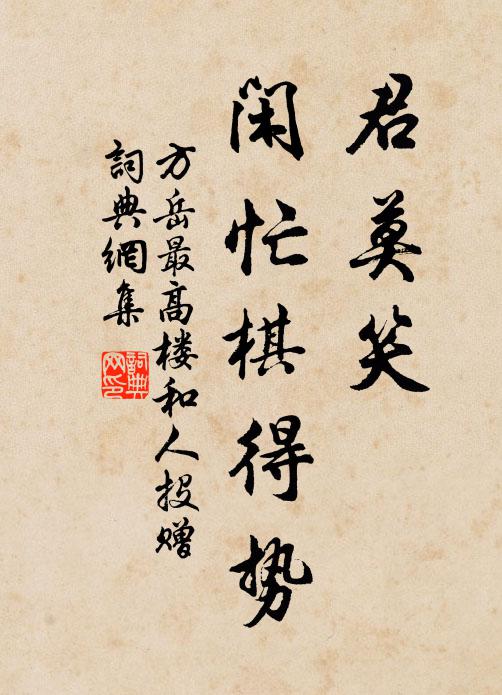 君莫笑
闲忙棋得势
方岳最高楼和人投赠
詞典網集
詞典网印